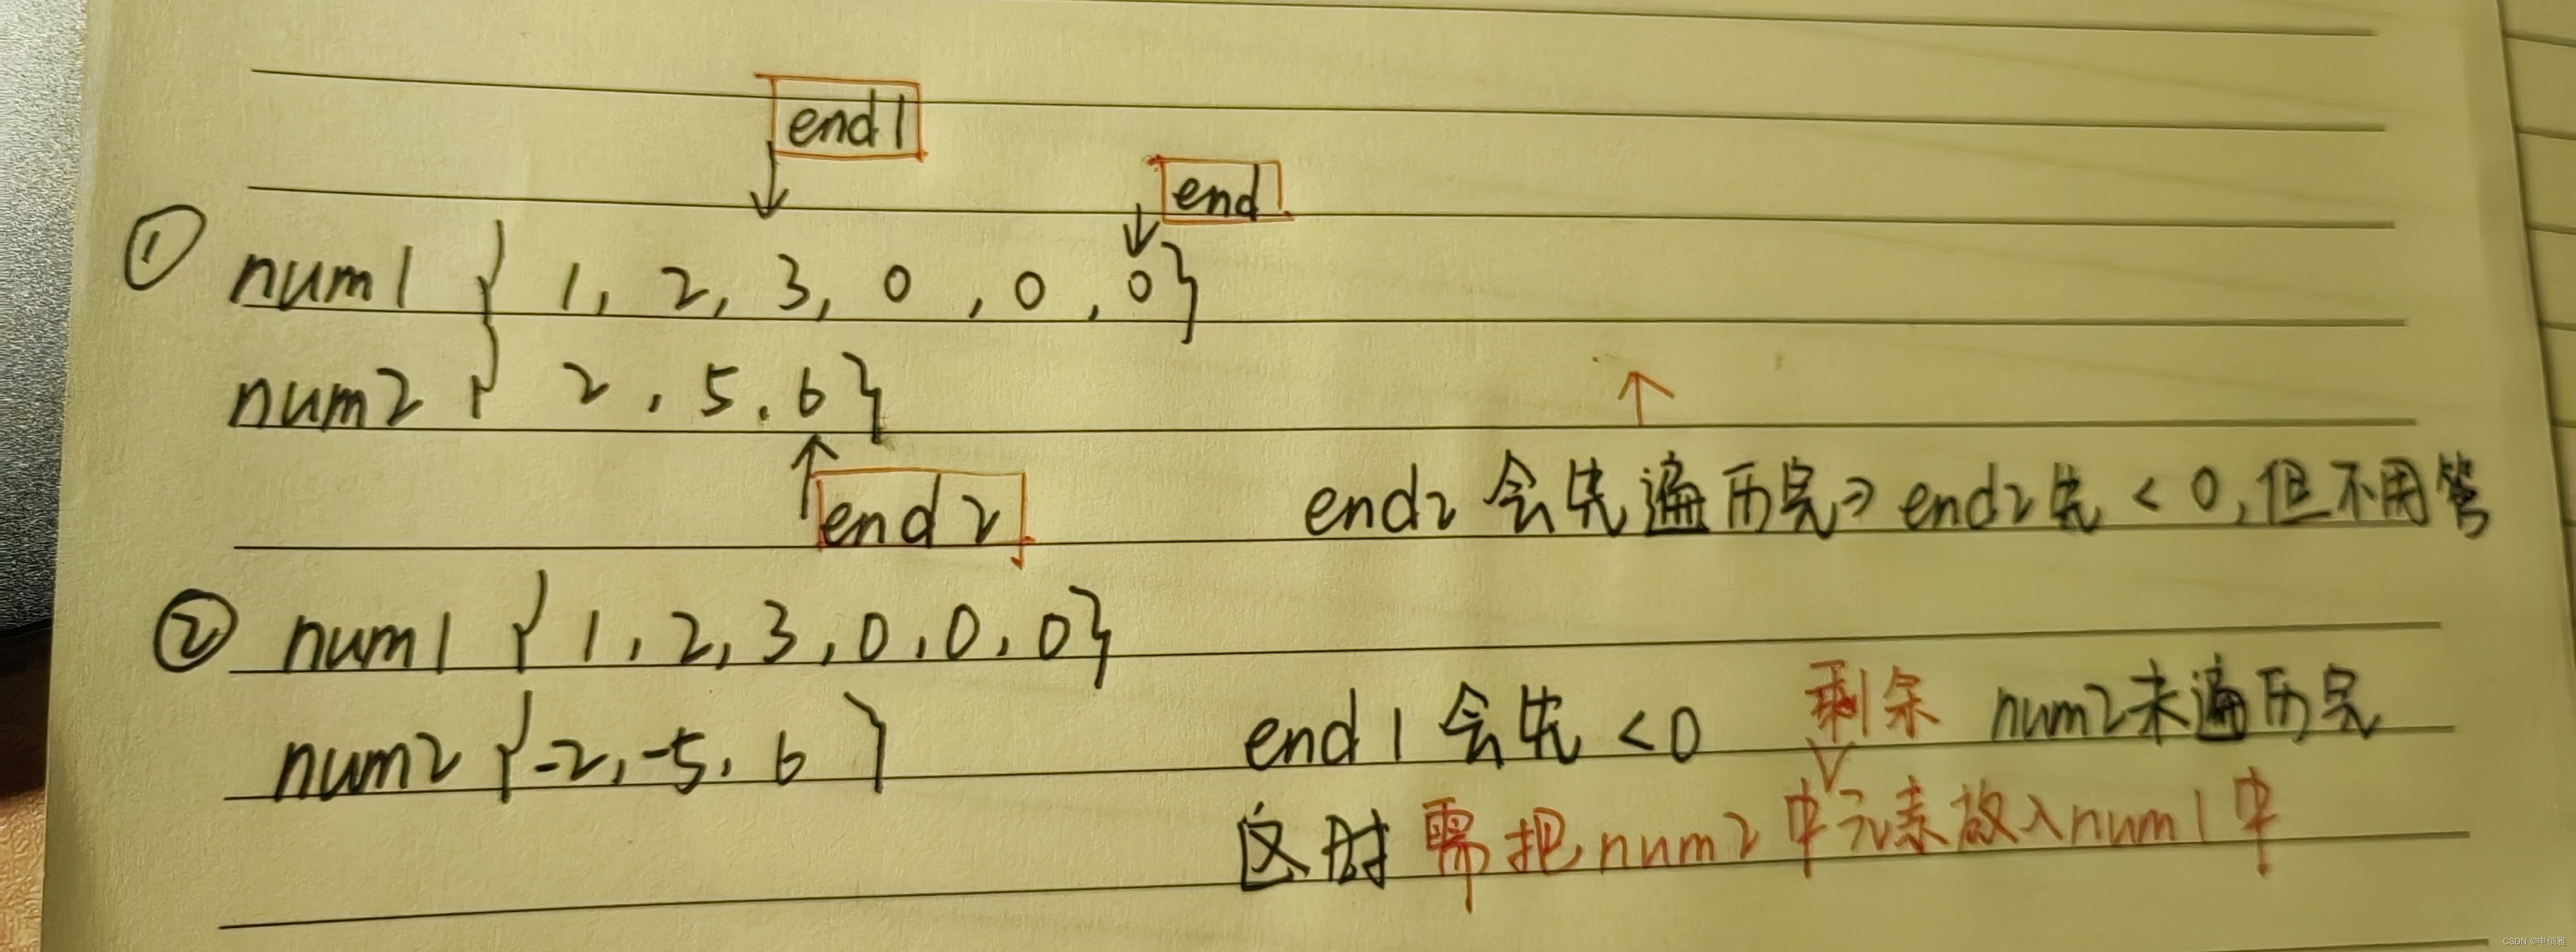 end1
end
① num1 { 1, 2, 3, 0, 0, 0}
num2 { 2, 5, 6}
end2
end2 会先遍历完⇒ end2先 < 0, 但不用管
② num1 { 1, 2, 3, 0, 0, 0}
num2 {-2, -5, 6 }
end1 会先 <0 剩余 num2未遍历完
这时 需把num2中元素放入num1中
CSDN @申俏雅